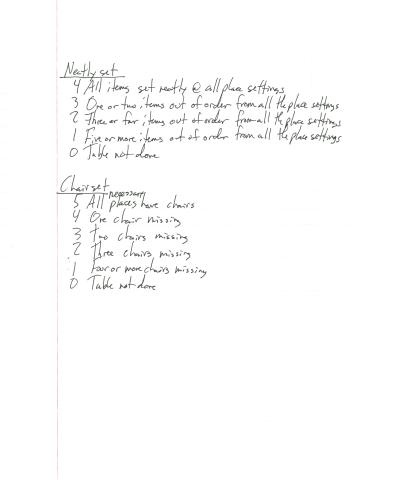 Neatly set
4 All items set neatly @ all place settings
3 One or two items out of order from all the place settings
2 Three or far items out of order from all the place settings
1 Five or more items out of order from all the place settings
0 Table not done
Chair set
necessary
5 All places have chairs
4 One chair missing
3 Two chairs missing
2 Three chairs missing
1 Four or more chairs missing
0 Table not done